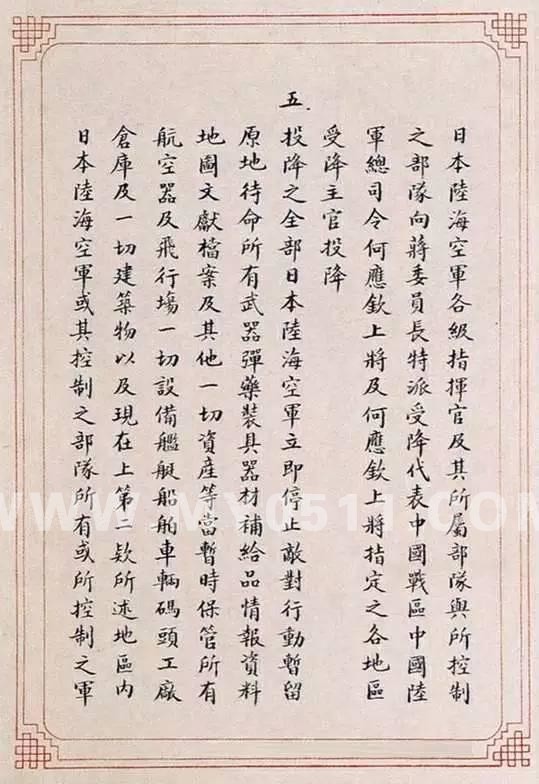 日本陸海空軍各級指揮官及其所屬部隊與所控制
之部隊向蔣委員長特派受降代表中國戰區中國陸
軍總司令何應欽上將及何應欽上將指定之各地區
受降主官投降
五.投降之全部日本陸海空軍立即停止敵對行動暫留
原地待命所有武器彈藥裝具器材補給品情報資料
地圖文獻檔案及其他一切資產等當暫時保管所有
航空器及飛行場一切設備艦艇船舶車輛碼頭工廠
倉庫及一切建築物以及現在上第二欵所述地區內
日本陸海空軍或其控制之部隊所有或所控制之軍
WWW.MY0511.COM